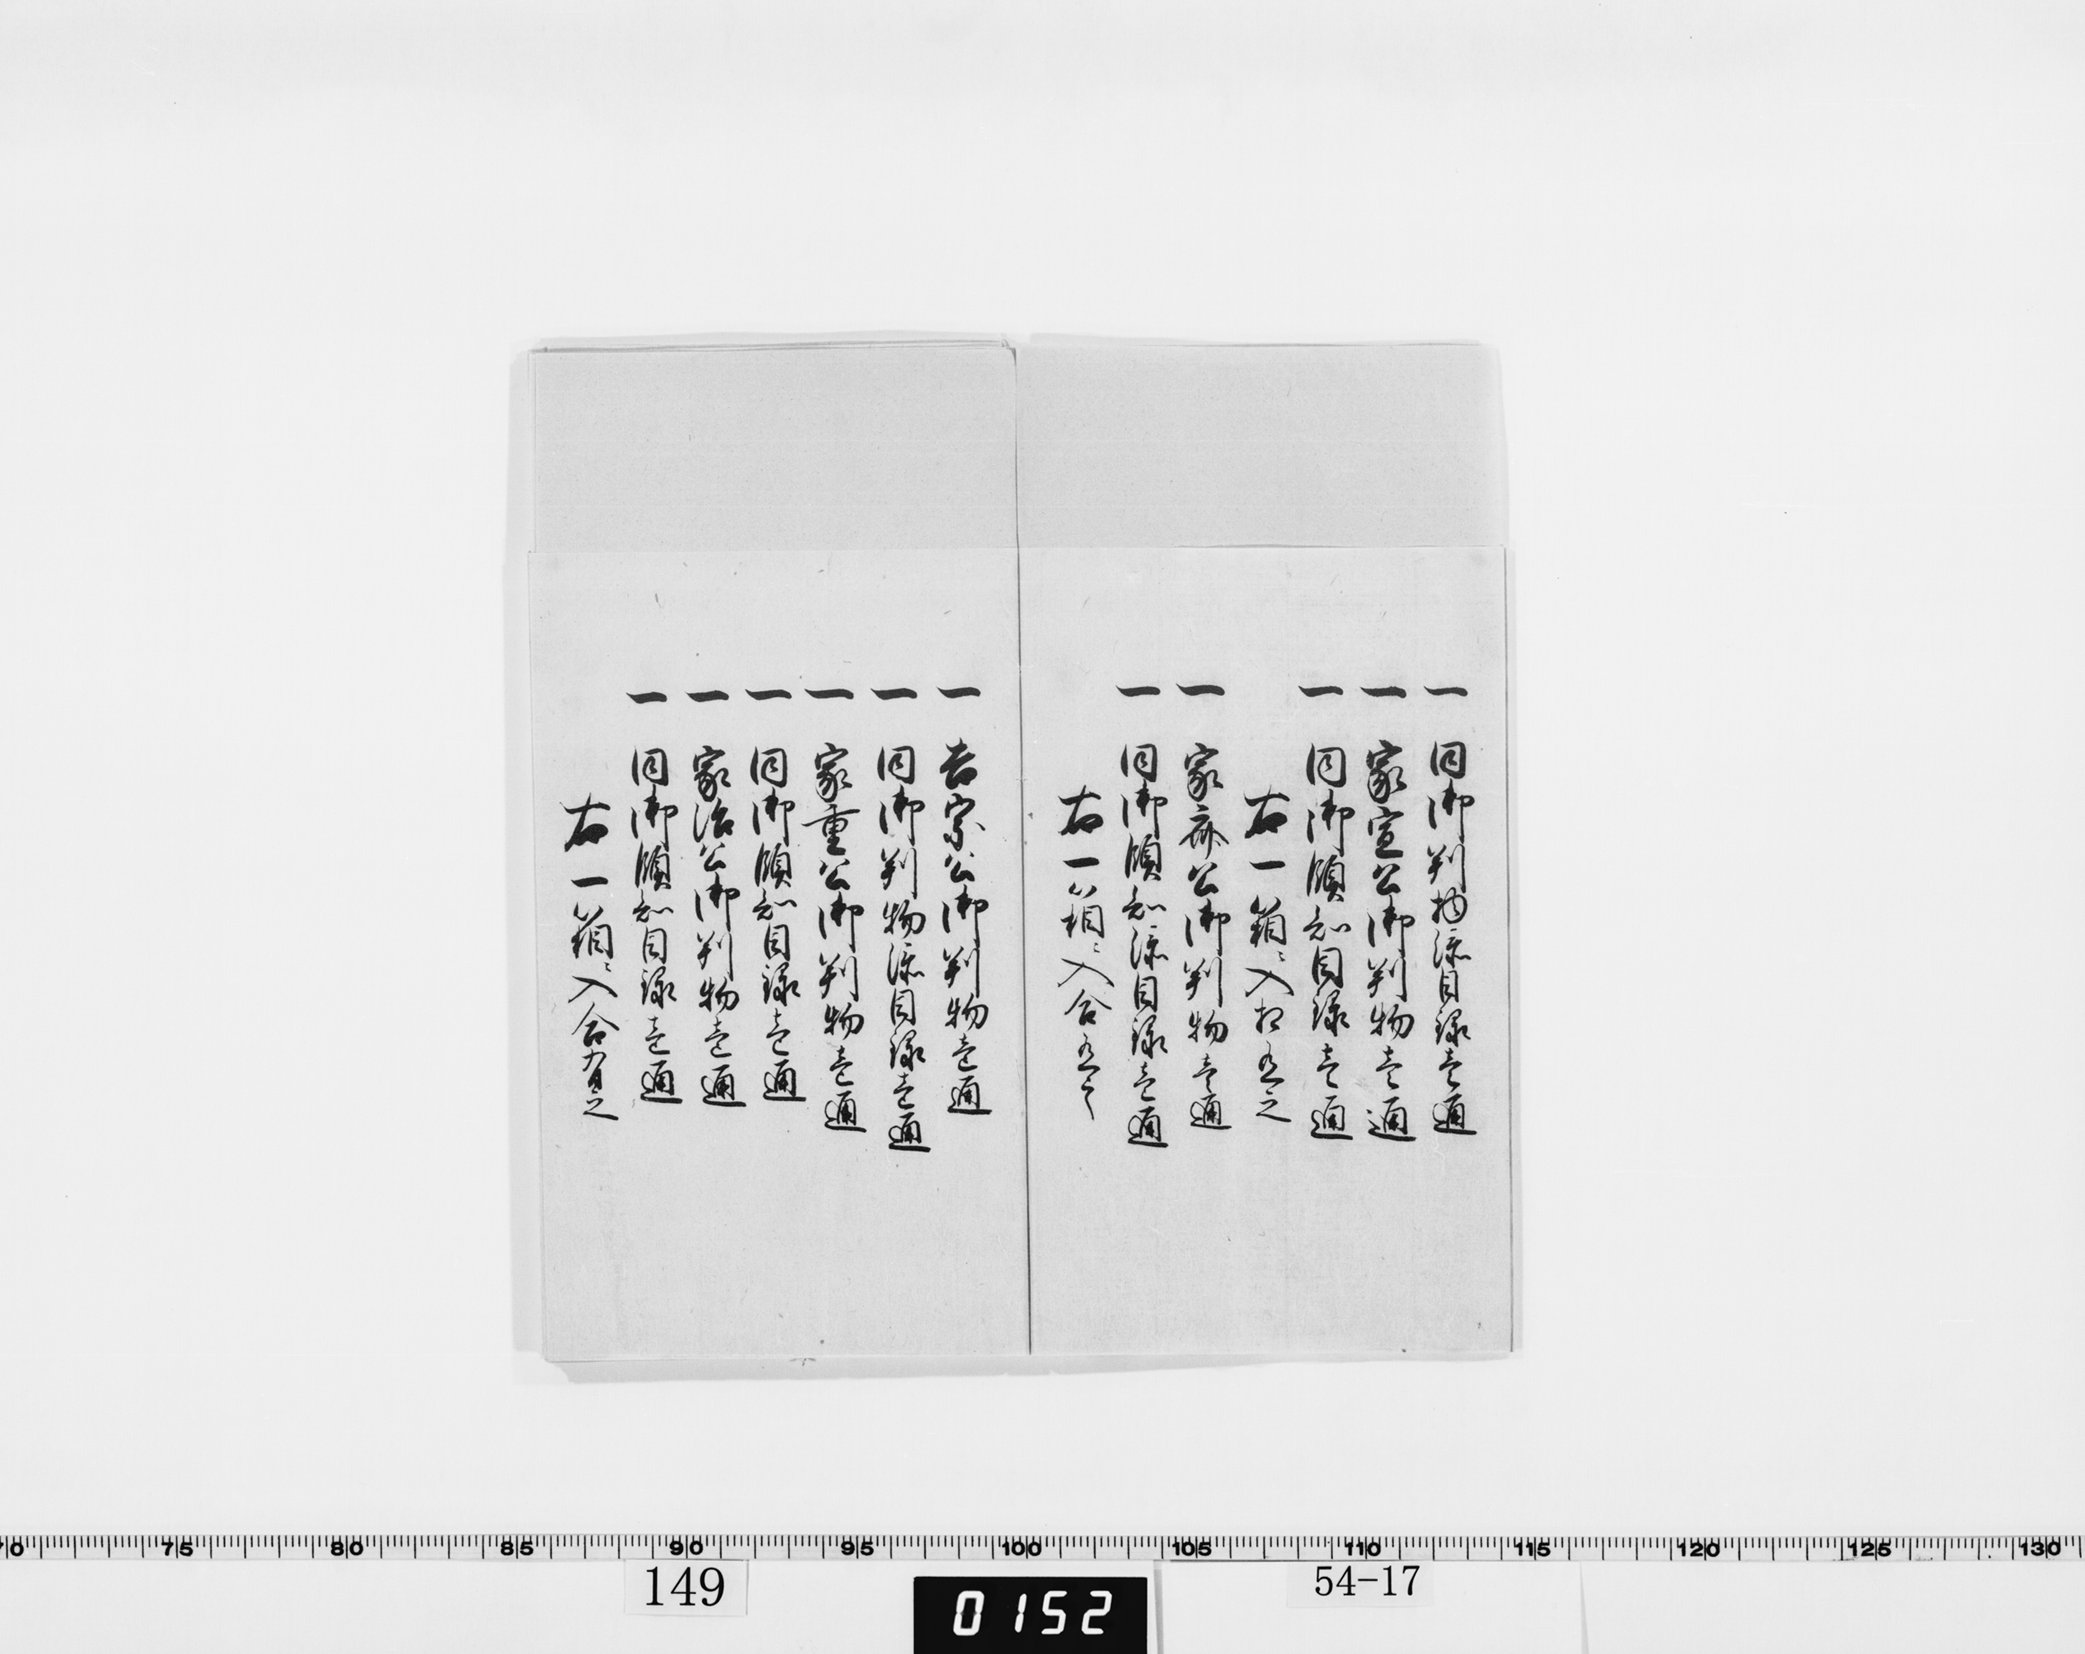 一 同御判物添目録壱通
一 家宣公御判物壱通
一 同御領知目録壱通
右一箱ニ入相有之
一 家齊公御判物壱通
一 同御領知添目録壱通
右一箱ニ入合有之
一 吉宗公御判物壱通
一 同御判物添目録壱通
一 家重公御判物壱通
一 同御領知目録壱通
一 家治公御判物壱通
一 同御領知目録壱通
右一箱ニ入合有之
70 75 80 85 90 95 100 105 110 115 120 125 130
149
0152
54-17